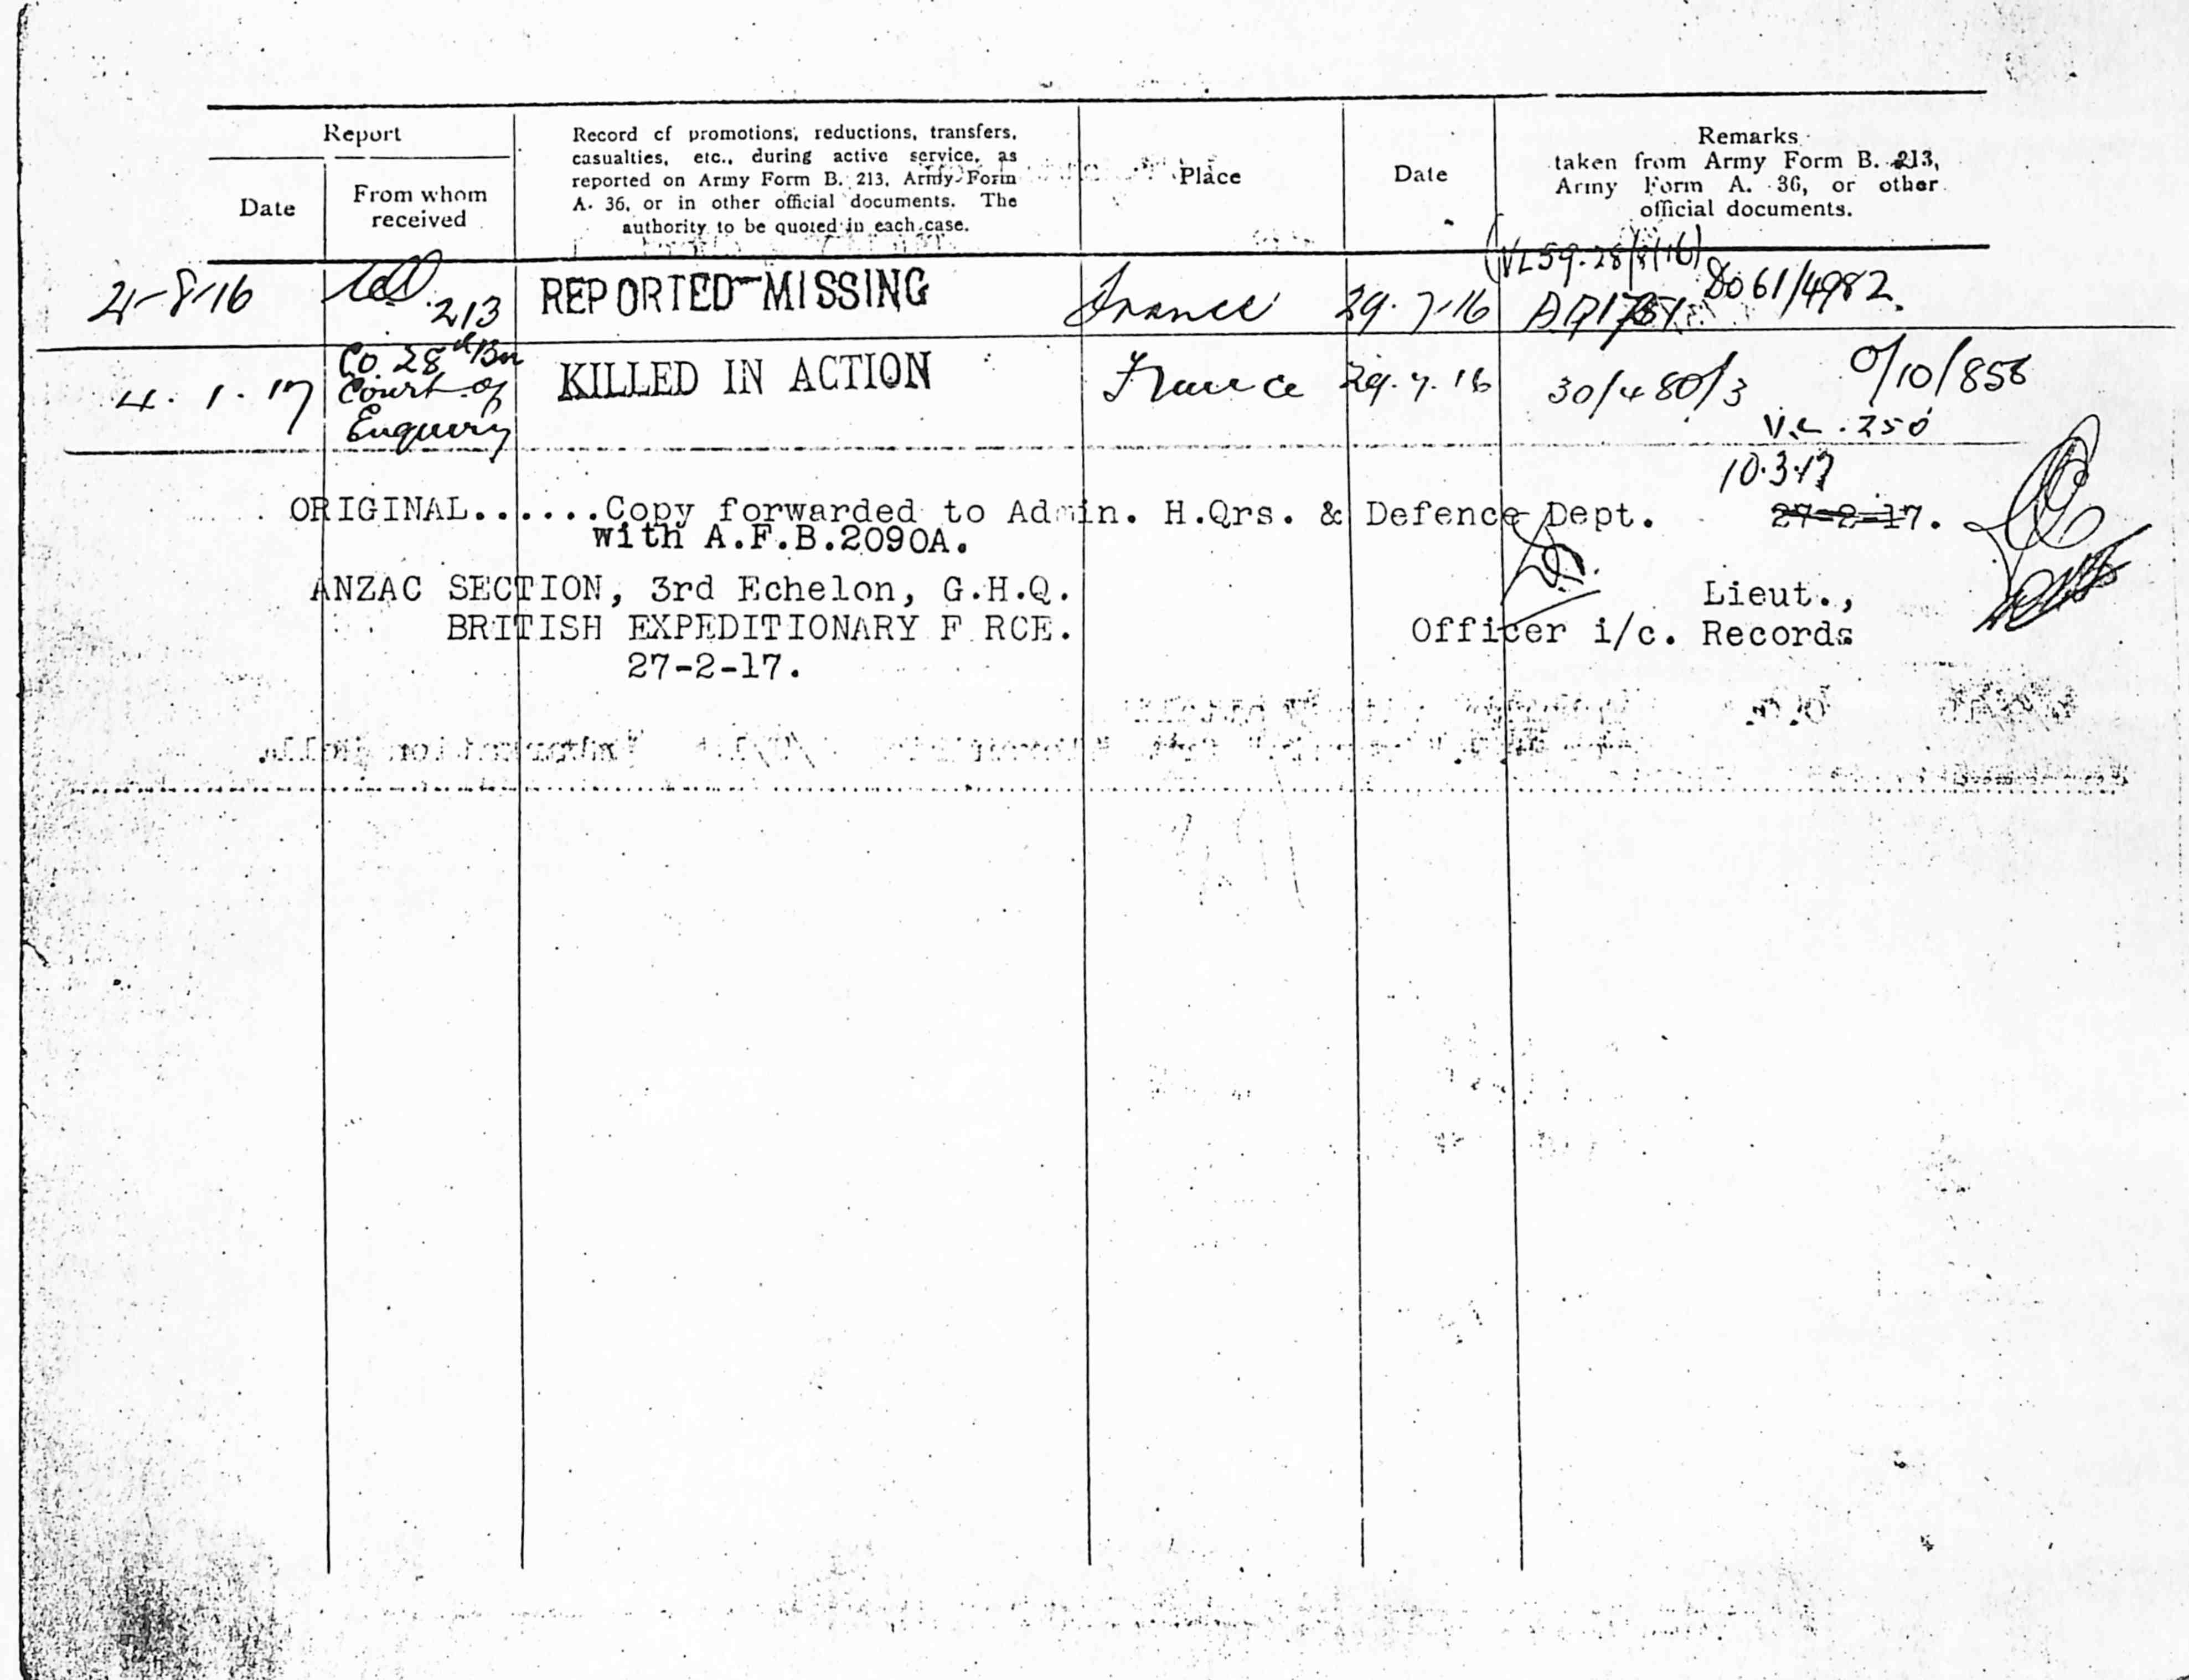 Report
Date
From whom
received
Record of promotions, reductions, transfers,
casualties, etc., during active service, as
reported on Army Form B. 213, Army Form
A. 36, or in other official documents. The
authority to be quoted in each case.
Place
Date
Remarks
taken from Army Form B. 213,
Army Form A. 36, or other
official documents.
(VL59. 28/8/16)
213 REPORTED MISSING France 29.7.16 8061/4982.
4.1.17 Co. 28th Bn
Court of
Enquiry
KILLED IN ACTION France 29.7.16 30/480/3 0/10/856
V.L. 250
10.3.17
ORIGINAL......Copy forwarded to Admin. H.Qrs. & Defence Dept. 27-2-17.
with A.F.B.2090A.
ANZAC SECTION, 3rd Echelon, G.H.Q. Lieut.,
BRITISH EXPEDITIONARY F RCE. Officer i/c. Records
27-2-17.